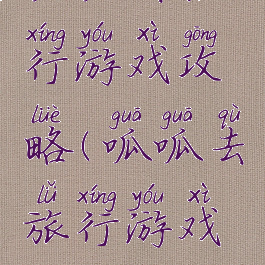 xíng yóu xì gōng
行游戏攻
lüè guā guā qù
略(呱呱去
lǚ xíng yóu xì
旅行游戏